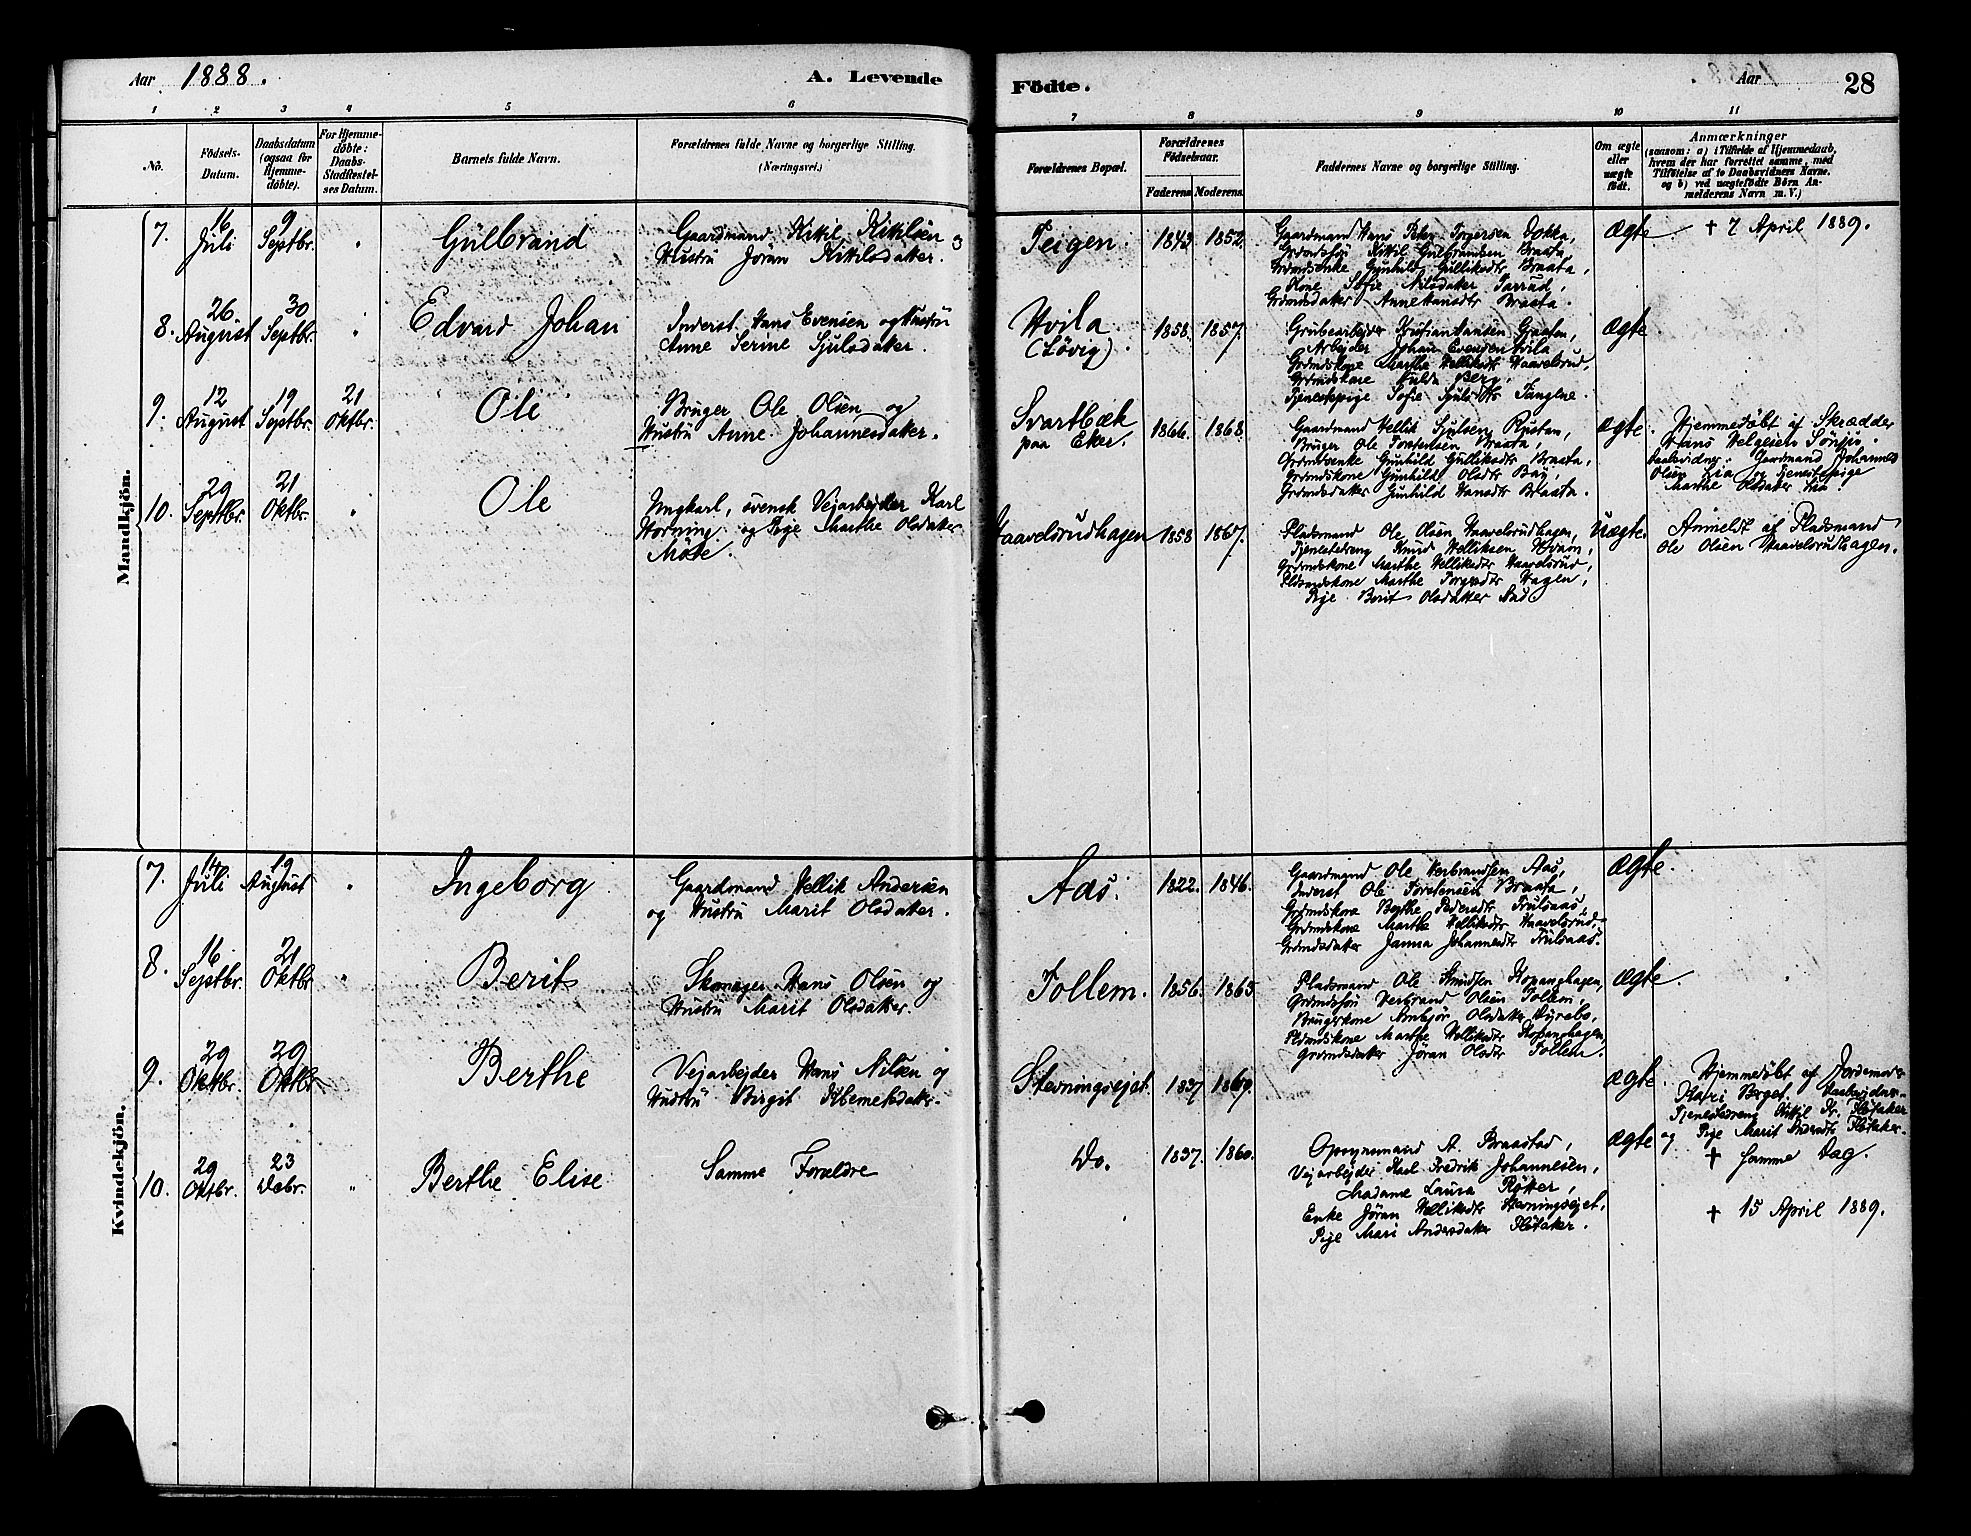 Aar 1888. A. Levende Fødte. Aar 28
1 2 3 4 5 6 7 8 9 10 11
No.
Fødsels-
Datum.
Daabsdatum
(ogsaa for
Hjemme-
døbte).
For Hjemme-
døbte:
Daabs-
Stadfæstel-
ses Datum.
Barnets fulde Navn.
Forældrenes fulde Navne og borgerlige Stilling.
(Næringsvei.)
Forældrenes Bopæl.
Forældrenes
Fødselsaar.
Faderens. Moderens.
Faddernes Navne og borgerlige Stilling.
Om ægte
eller
uægte
født.
Anmærkninger
(saasom: a) i Tilfælde af Hjemmedaab,
hvem der har forrettet samme, med
Tilføielse af to Daabsvidners Navne,
og b) ved uægtefødte Børn An-
melderens Navn m. V.)
Mandkjøn.
7. 16 Juli 9 Septbr. " Gulbrand
Gaardmand Kittil Kittilsen og
Hustru Jöran Kittilsdatter.
Teigen. 1842 1852
Gaardmand Hans Peter Torgersen Dokka,
Grdmdssøn Kittil Gulbrandsen Braata,
Grdmdsenke Gunhild Gulliksdtr Braata,
Kone Sofie Nilsdatter Tarrud,
Grdmdsdatter Anne Hansdtr Braata.
ægte † 7 April 1889.
8. 26 August 30 Septbr. " Edvard Johan
Inderst Hans Evensen og Hustru
Anne Serine Sjulsdatter.
Hvila
(Løvig). 1858. 1857.
Grubearbejder Kristian Hansen
Arbejder Johan Evensen Hvila
Grdmdskone Marthe Helliksdtr Haavelsrud,
Grdmdskone Hulda Berg,
Tjenestepige Sofie Sjulsdtr Tangene.
ægte
9. 12 August 19 Septbr. 21 Oktbr. Ole
Bruger Ole Olsen og
Hustru Anne Johannesdatter.
Svartbæk
paa Eker. 1866. 1868
Gaardmand Hellik Sjulsen
Bruger Ole Torstensen Braata,
Grdmdsenke Gunhild Gulliksdtr Braata,
Grdmdskone Gunhild Olsdtr Bøy,
Grdmdsdatter Gunhild Hansdtr Braata.
ægte. Hjemmedøbt af Skrædder
Hans Helgesen
Daabsvidner: Gaardmand Johannes
Olsen Lia og Tjenestepige
Marthe Olsdatter Lia.
10. 29 Septbr. 21 Oktbr. " Ole
Ungkarl, svensk Vejarbejder Karl
og Pige Marthe Olsdatter
Haavelsrudhagen 1858 1867.
Pladsmand Ole Olsen Haavelsrudhagen,
Tjenestedreng Knud Helliksen
Grdmdskone Marthe Helliksdtr Haavelsrud,
Pldsmdskone Marthe Torgrsdtr Hagen,
Pige Berit Olsdatter
Uægte. Anmeldt af Pladsmand
Ole Olsen Haavelsrudhagen.
Kvindekjøn.
7. 14 Juli 19 August " Ingeborg
Gaardmand Hellik Andersen
og Hustru Marit Olsdatter.
Aas. 1822. 1846.
Gaardmand Ole Herbrandsen Aas,
Inderst Ole Torstensen Braata,
Grdmdskone Berthe Pedersdtr Trulsaas,
Grdmdskone Marthe Helliksdtr Haavelsrud,
Grdmdsdatter Janna Johannesdtr Trulsaas.
ægte.
8. 16 Septbr. 21 Oktbr " Berit
Skomager Hans Olsen og
Hustru Marit Olsdatter.
Tollem. 1856. 1865
Pladsmand Ole Knudsen
Grdmdssøn Herbrand Olsen Tollem,
Brugerkone Anbjør Olsdatter
Pldsmdskone Marthe Helliksdtr
Grdmdsdatter Jöran Olsdtr Tollem.
ægte.
9. 29 Oktbr. 29 Oktbr Berthe
Vejarbejder Hans Nilsen og
Hustru Birgit Klemetsdatter.
Stevningsejet. 1837 1860.
ægte. Hjemmedøbt af Jordemoder
Berget. Daabsvidner:
Tjenestedreng Kittil Kr. Fløtaker
og Pige Marit Andersdtr Fløtaker.
† samme Dag.
10. 29 Oktbr. 23 Decbr. " Berthe Elise
Samme Forældre
Do. 1837. 1860.
Opsynsmand A. Braastad,
Vejarbejder Karl Fredrik Johannesen,
Madame Laura
Enke Jöran Helliksdtr Stevningsejet,
Pige Mari Andersdatter Fløtaker.
ægte
† 15 April 1889.